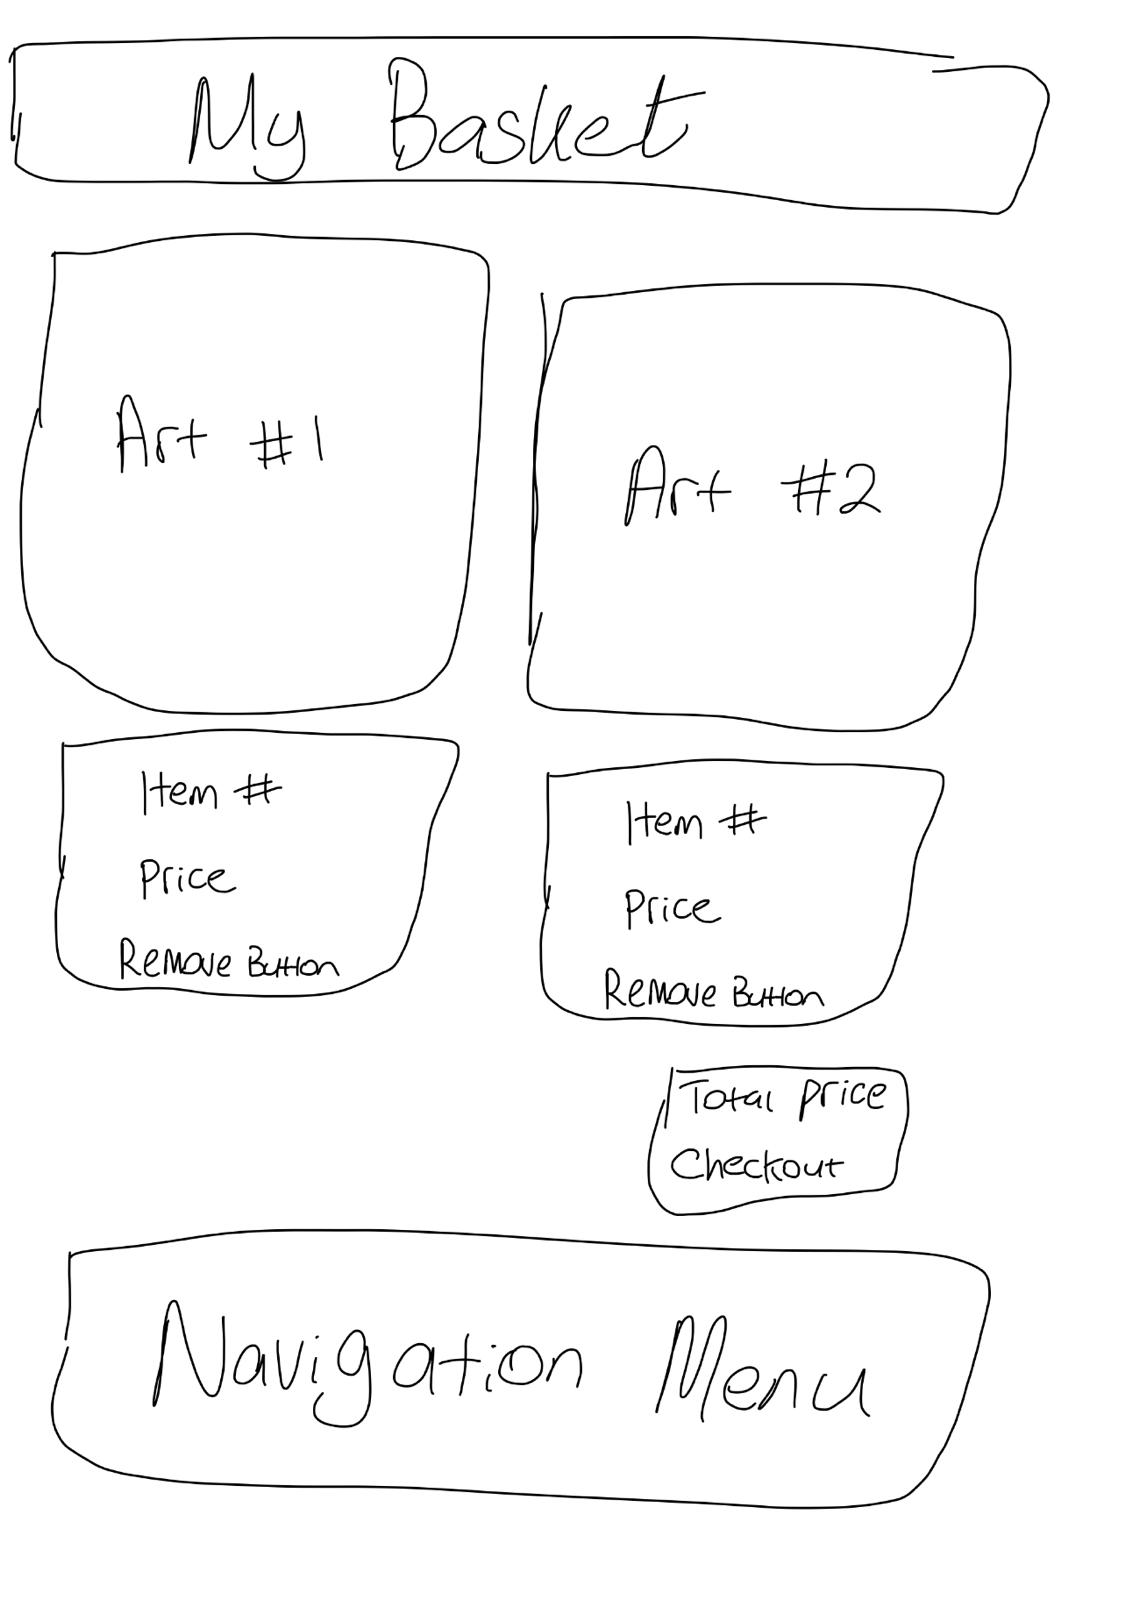 My Basket
Art #1
Art #2
Item #
Price
Remove Button
Item #
Price
Remove Button
Total price
Checkout
Navigation Menu